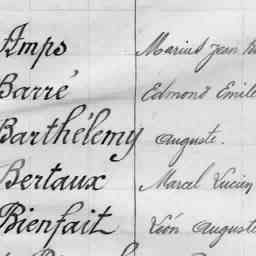 Amps Marius Jean
Barré Edmond Emile
Barthélemy Auguste.
Bertaux Marcel Lucien
Bienfait Léon Auguste